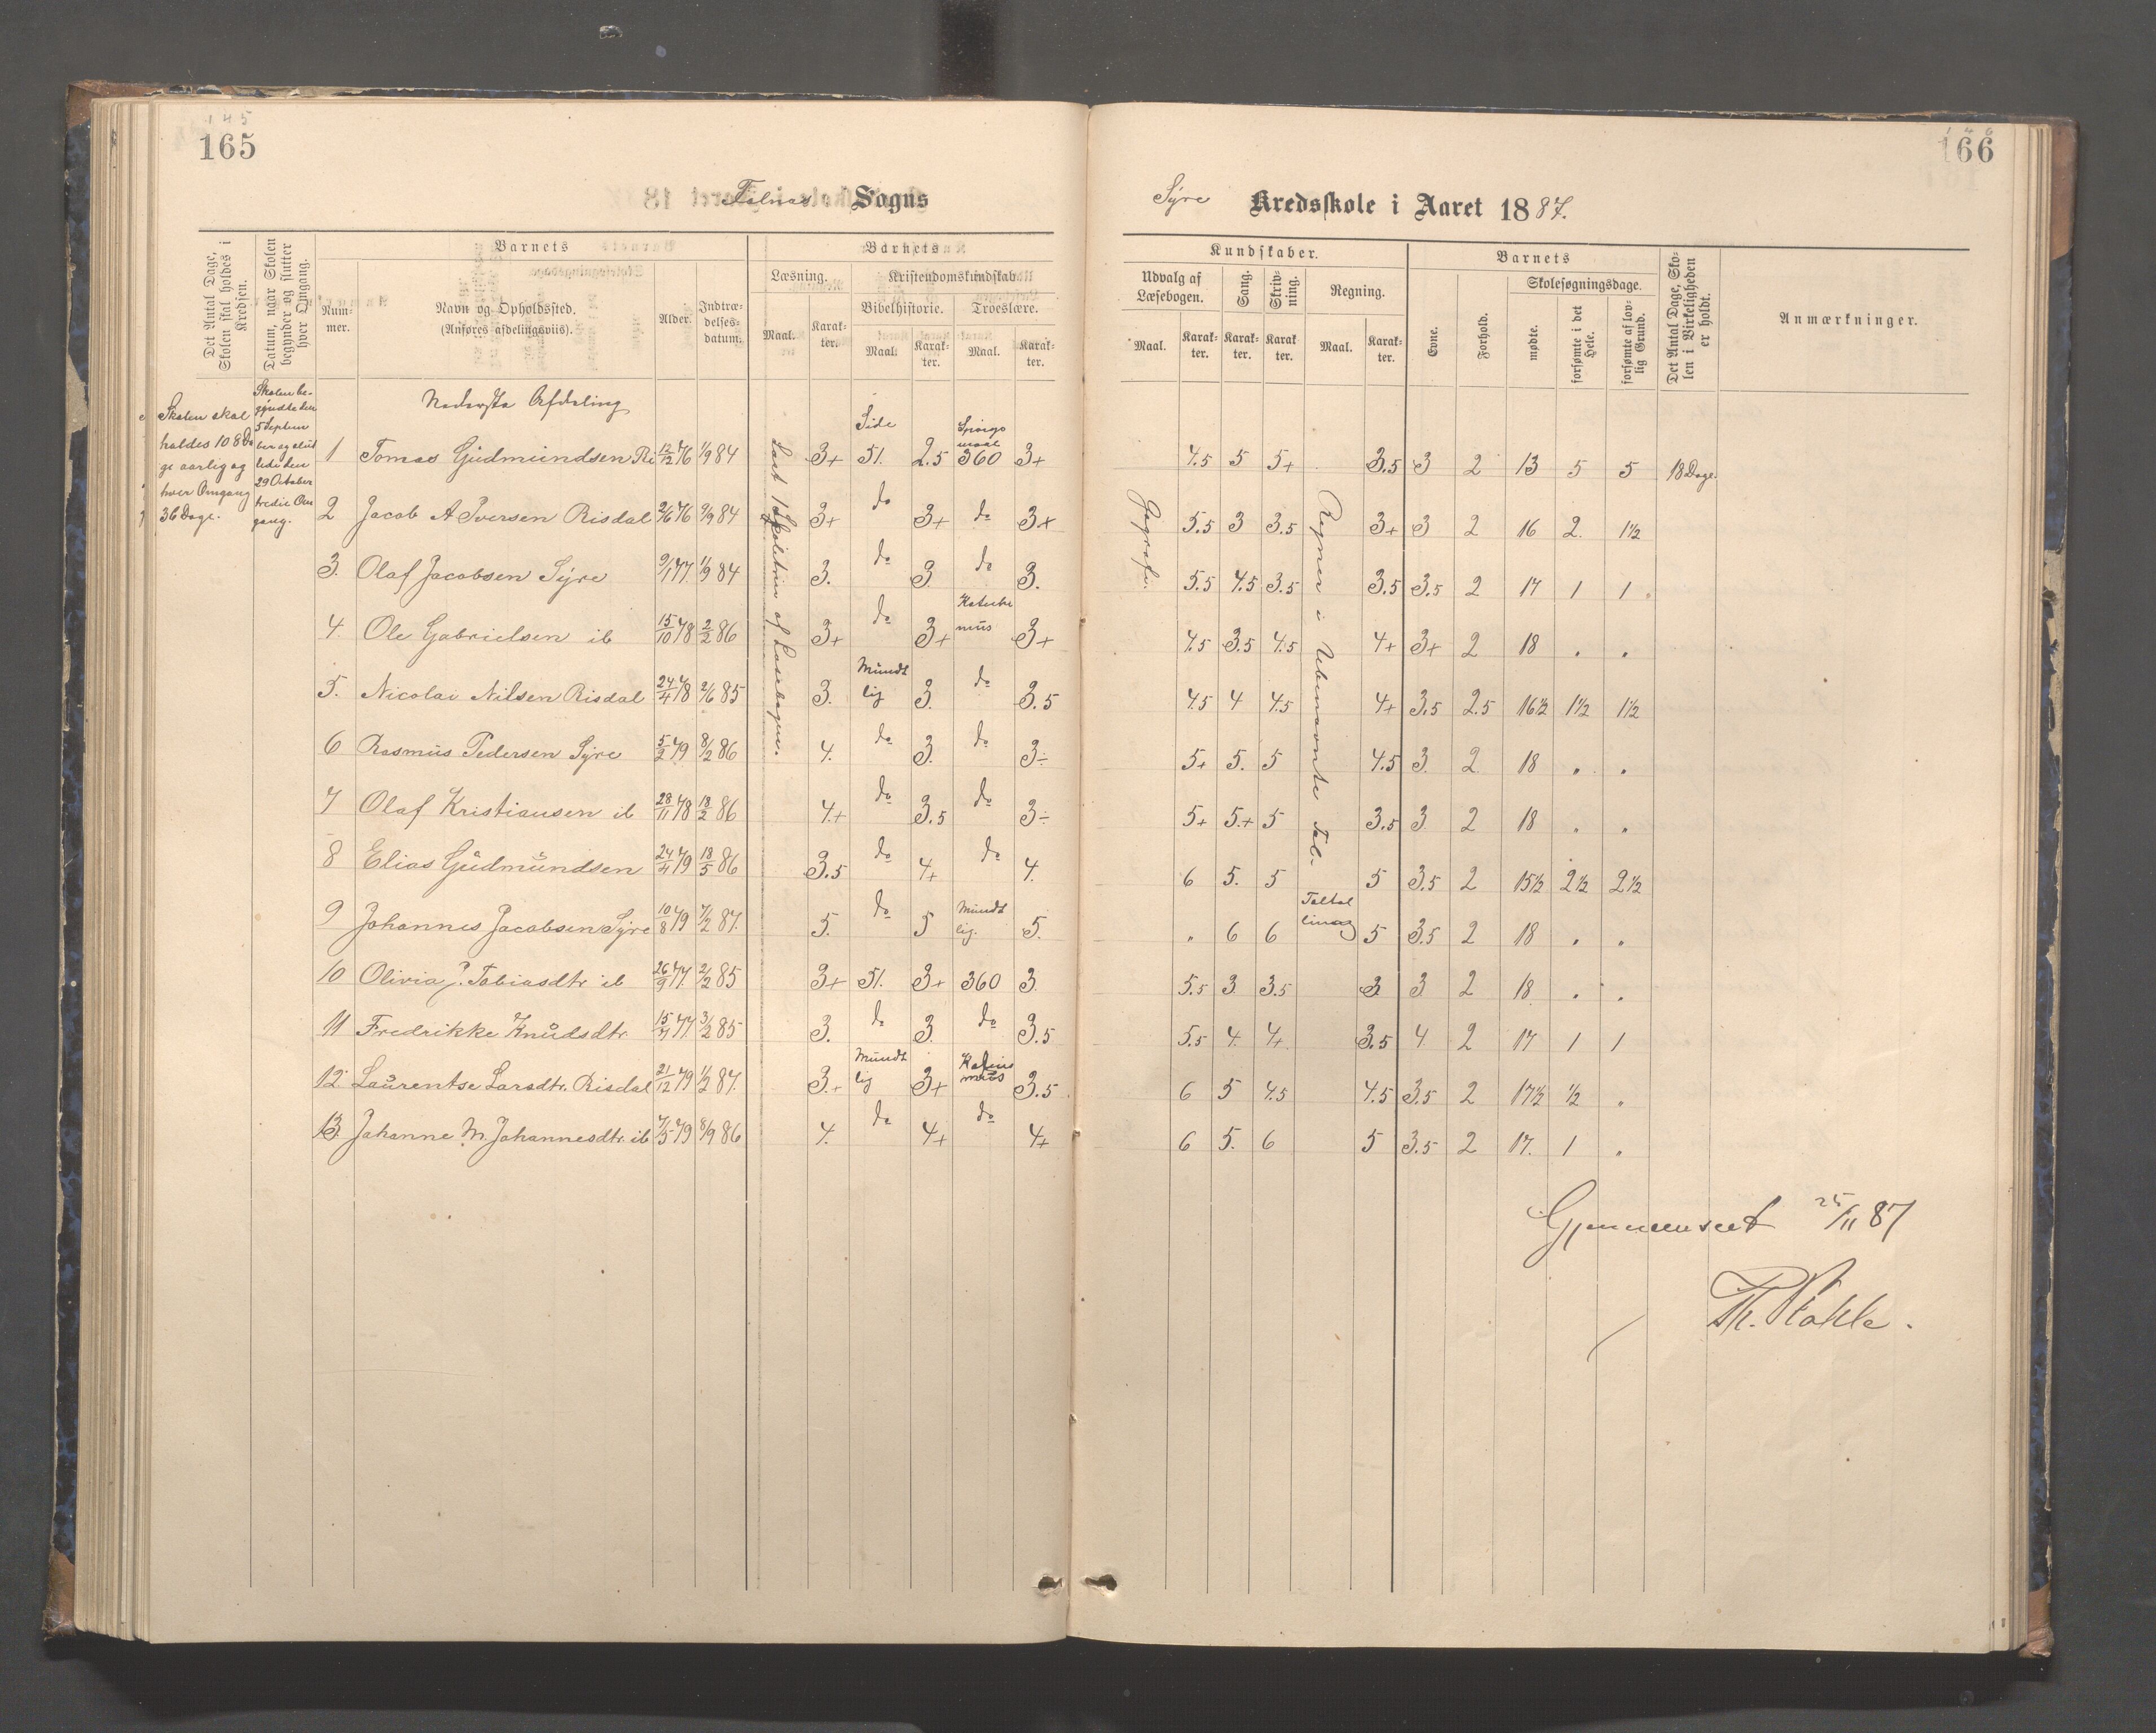 145
165
Falnes Sogns
Det Antal Dage, Skolen skal holdes i Kredsen.
Datum, naar Skolen begynder og slutter hver Omgang.
Barnets
Nummer.
Navn og Opholdssted.
(Anføres afdelingsviis).
Alder.
Indtrædelsesdatum.
Barnets
Læsning.
Maal.
Karakter.
Kristendomskundskab
Bibelhistorie.
Maal.
Karakter.
Troeslære.
Maal.
Karakter.
Skolen skal
holdes 108 Da
ge aarlig og
hver Omgang
36 Dage.
Skolen be-
gyndte den
5 Septem
ber og slut
tede den
29 October
tredie Om
gang.
Nederste Afdeling
Læst 1 Skoletrin af Læsebogen.
1 Tomas Gudmundsen Ri 12/12 76 1/9 84 3+ Side 51. 2.5 Spörgsmaal 360 3+
2 Jacob A Iversen Risdal 2/6 76 9/9 84 3+ do 3+ do 3+
3. Olaf Jacobsen Syre 9/1 77. 1/9 84 3. do 3. do 3.
4. Ole Gabrielsen ib 15/10 78 2/2 86 3+ do 3+ Katechismus 3+
5. Nicolai Nilsen Risdal 24/4 78 2/6 85 3. Mundtlig 3. do 3.5
6 Rasmus Pedersen Syre 5/2 79 8/2 86 4. do 3. do 3÷
7 Olaf Kristiansen ib 28/11 78 18/2 86 4.+ do 3.5 do 3÷
8 Elias Gudmundsen 24/4 79 18/5 86 3.5 do 4+ do 4.
9 Johannes Jacobsen Syre 10/8 79 7/2 87. 5. do 5 Mundtlig. 5.
10 Olivia J. Tobiasdtr ib 26/9 77. 2/2 85 3+ 51. 3+ 360 3.
11 Fredrikke Knudsdtr. 15/4 77. 3/2 85 3. do 3. do 3.5
12. Laurentse Larsdtr. Risdal 21/12 79 1/2 87. 3.+ Mundtlig 3+ 3.5
13 Johanne M. Johannesdtr. ib 7/5 79 8/9 86 4. do 4+ do 4+
146
166
Syre Kredsskole i Aaret 1887.
Kundskaber.
Udvalg af Læsebogen.
Maal.
Karakter.
Sang.
Karakter.
Skrivning.
Karakter
Regning.
Maal.
Karakter.
Barnets
Evne.
Forhold.
Skolesøgningsdage.
mødte.
forsømte i det Hele.
forsømte af lovlig Grund.
Det Antal Dage, Skolen i Virkeligheden er holdt.
Anmærkninger.
Gografi.
Regner i Ubenævnte Tal.
4.5 5 5+ 3.5 3 2 13 5 5 18 Dage.
5.5 3 3.5 3+ 3 2 16 2. 1½
5.5 4.5 3.5 3.5 3.5 2 17 1 1
4.5 3.5 4.5 4+ 3+ 2 18 " "
4.5 4 4.5 4+ 3.5 2.5 16½ 1½ 1½
5+ 5. 5 4.5 3. 2 18 " "
5+ 5.+ 5 3.5 3 2 18 " "
6 5. 5 5 3.5 2 15½ 2½ 2½
" 6 6 5 3.5 2 18 " "
5.5 3 3.5 3 3 2 18 " "
5.5 4. 4+ 3.5 4 2 17 1 1
6 5 4.5 4.5 3.5 2 17½ ½ "
6 5. 6 5 3.5 2 17. 1 "
Gjennemseet 25/11 87